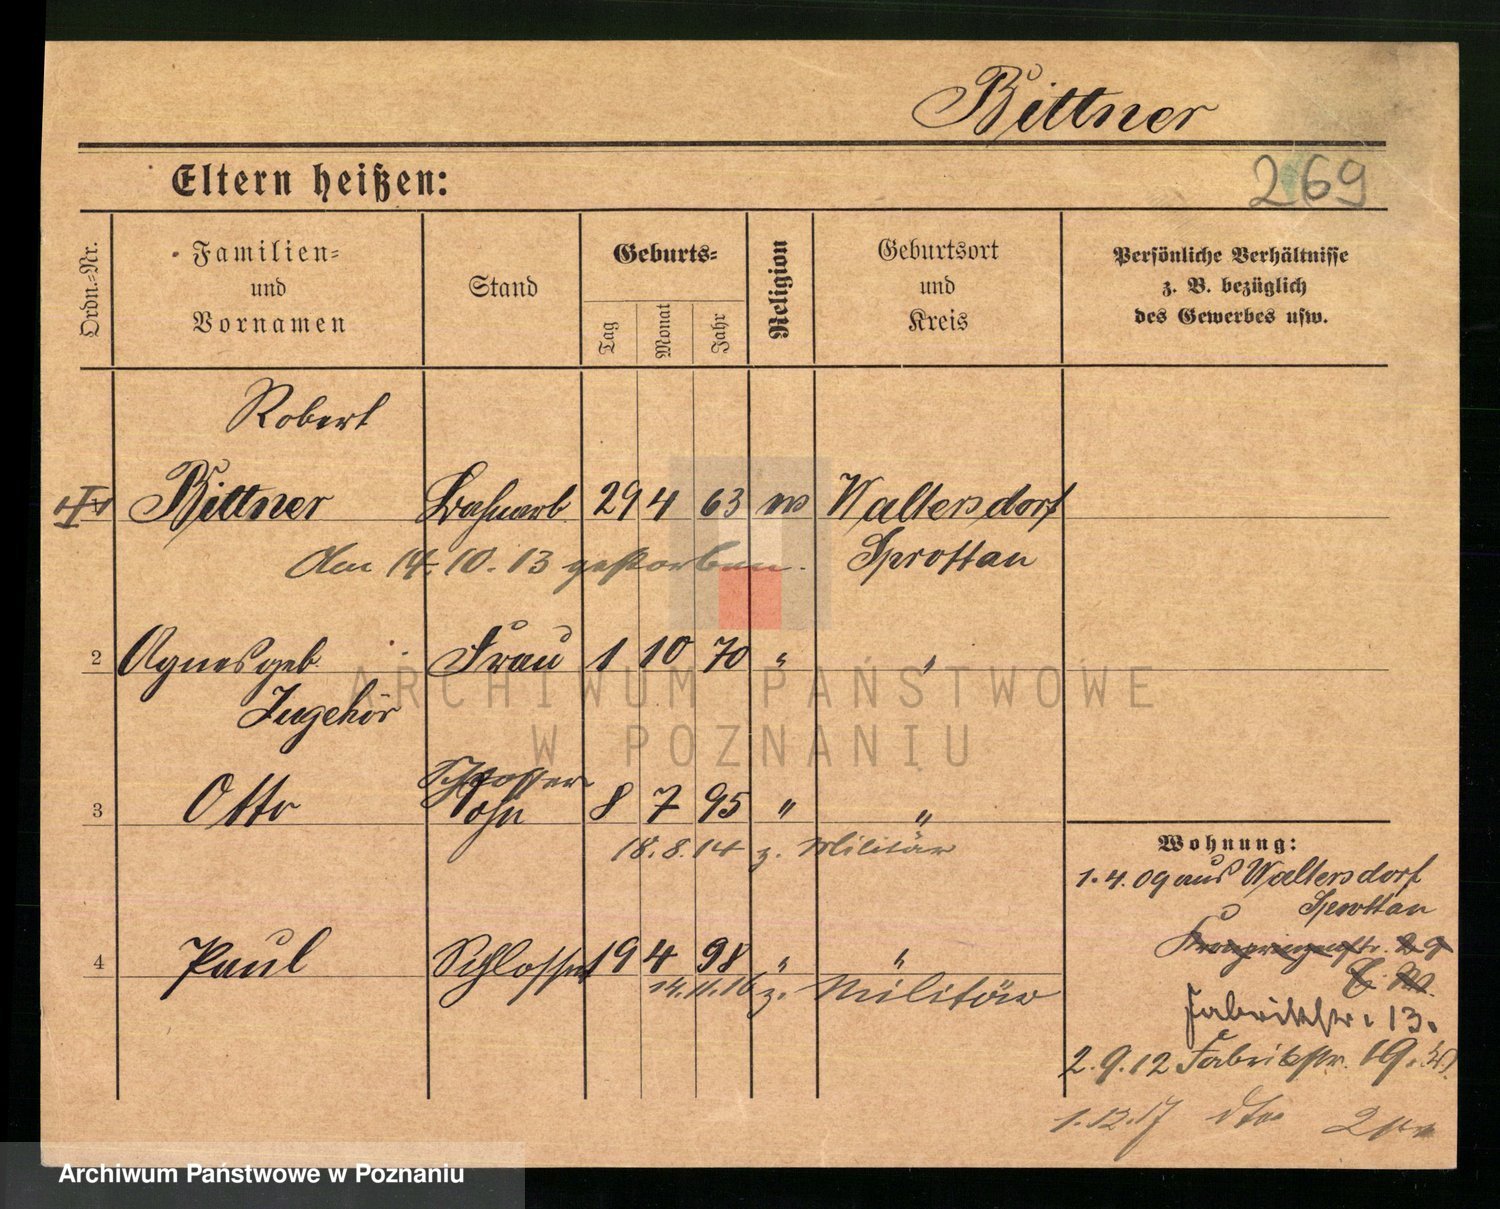 Bittner
269
Eltern heißen:
Ordn.-Nr.
Familien-
und
Vornamen
Stand
Geburts-
Tag
Monat
Jahr
Religion
Geburtsort
und
Kreis
Persönliche Verhältnisse
z. B. bezüglich
des Gewerbes usw.
Robert
Bittner Bahnarb 29 4 63 Waltersdorf
Am 14.10.13 gestorben. Sprottau
2 Agnes geb. Frau 1 10 70 " "
Jugehör
Schlosser
3 Otto Sohn 8 7 95 " "
18.8.14 z. Militär
4 Paul Schlosser 19 4 98 " "
14.11.16 z. Militär
Wohnung:
1.4.09 aus Waltersdorf
Sprottau
Kronprinzenstr. 29
Fabrikstr. 13.
2.9.12 Fabrikstr. 19.
1.12.17 dto
ARCHIWUM PAŃSTWOWE
W POZNANIU
Archiwum Państwowe w Poznaniu